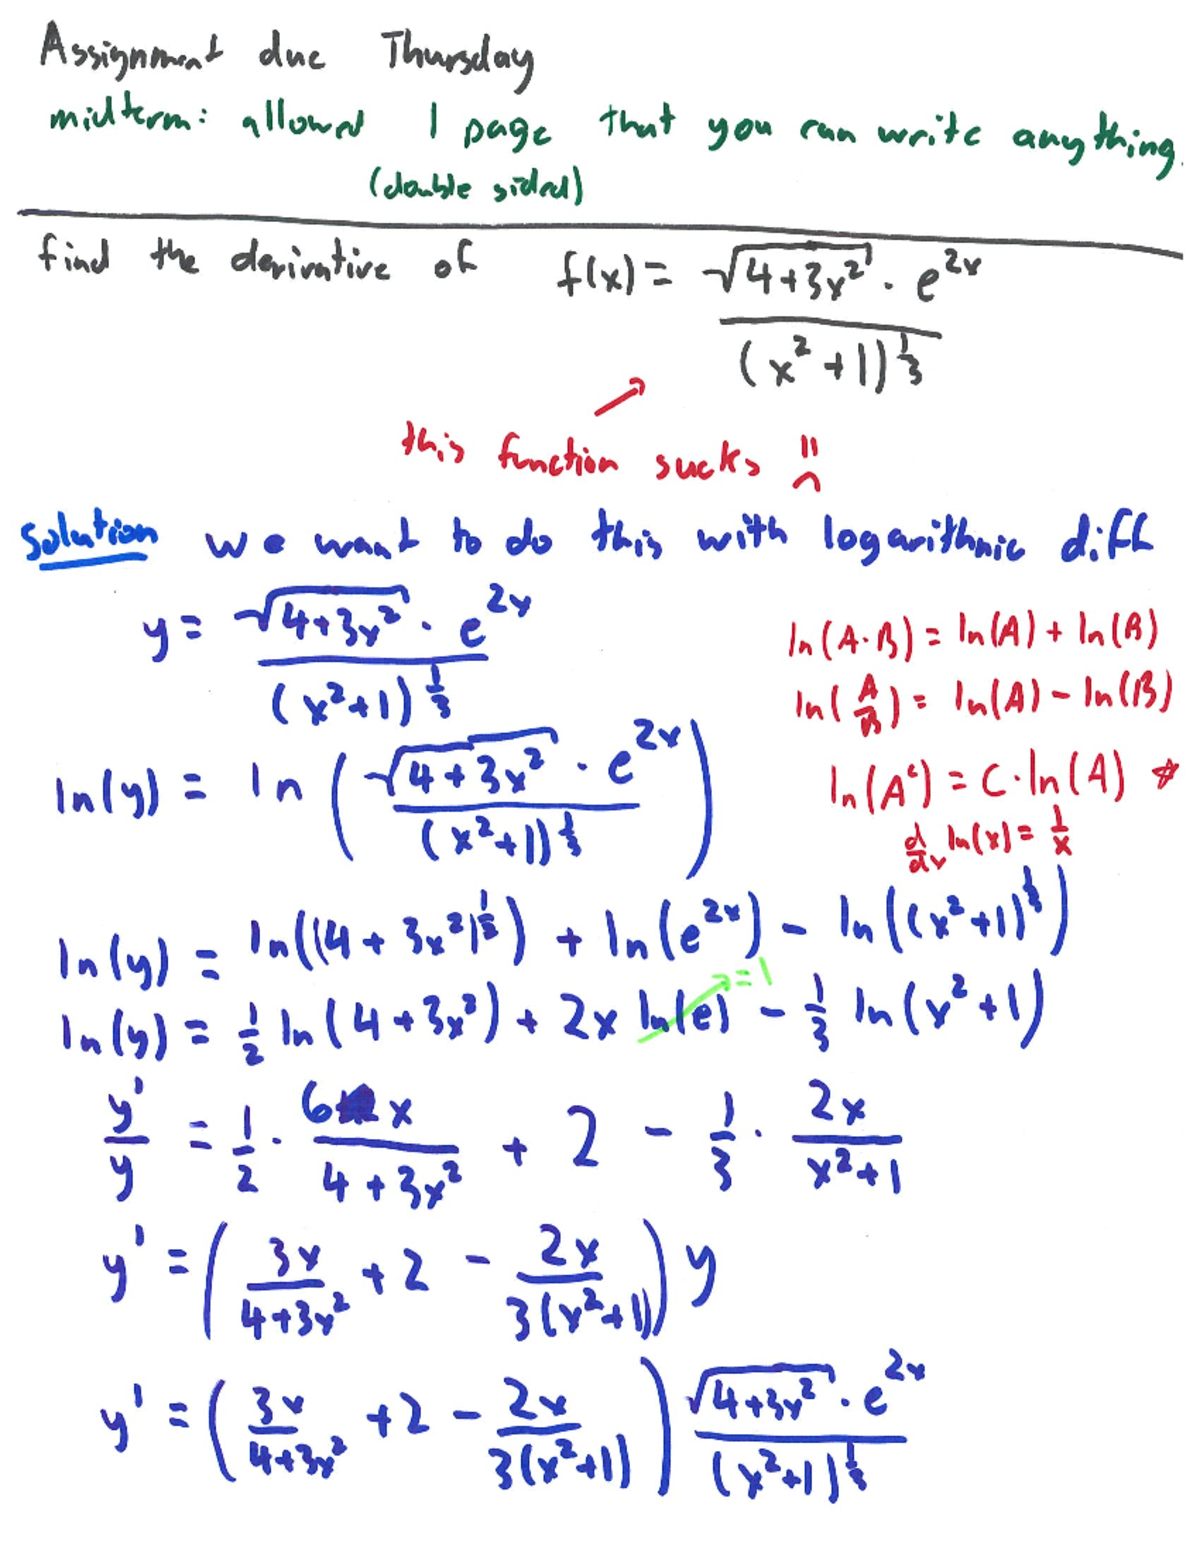 Assignment due Thursday
midterm: allowed 1 page that you can write anything.
(double sided)
find the derivative of f(x) = √(4+3x²) · e^(2x) / (x²+1)^(1/3)
this function sucks :(
Solution we want to do this with logarithmic diff
y = √(4+3x²) · e^(2x) / (x²+1)^(1/3)
ln(A·B) = ln(A) + ln(B)
ln(A/B) = ln(A) − ln(B)
ln(y) = ln(√(4+3x²) · e^(2x) / (x²+1)^(1/3))
ln(A^c) = C·ln(A) *
d/dx ln(x) = 1/x
ln(y) = ln((4+3x²)^(1/2)) + ln(e^(2x)) − ln((x²+1)^(1/3))
ln(y) = 1/2 ln(4+3x²) + 2x ln(e) − 1/3 ln(x²+1)
=1
y'/y = 1/2 · 6x/(4+3x²) + 2 − 1/3 · 2x/(x²+1)
y' = (3x/(4+3x²) + 2 − 2x/(3(x²+1))) y
y' = (3x/(4+3x²) + 2 − 2x/(3(x²+1))) √(4+3x²) · e^(2x) / (x²+1)^(1/3)